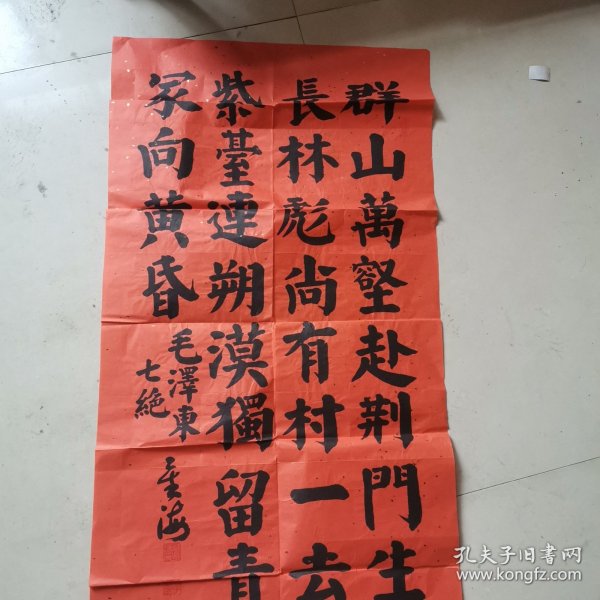 群山萬壑赴荆門生
長林彪尚有村一去
紫臺連朔漠獨留青
冢向黄昏
毛澤東
七絶
海
孔夫子旧书网
www.kongfz.com